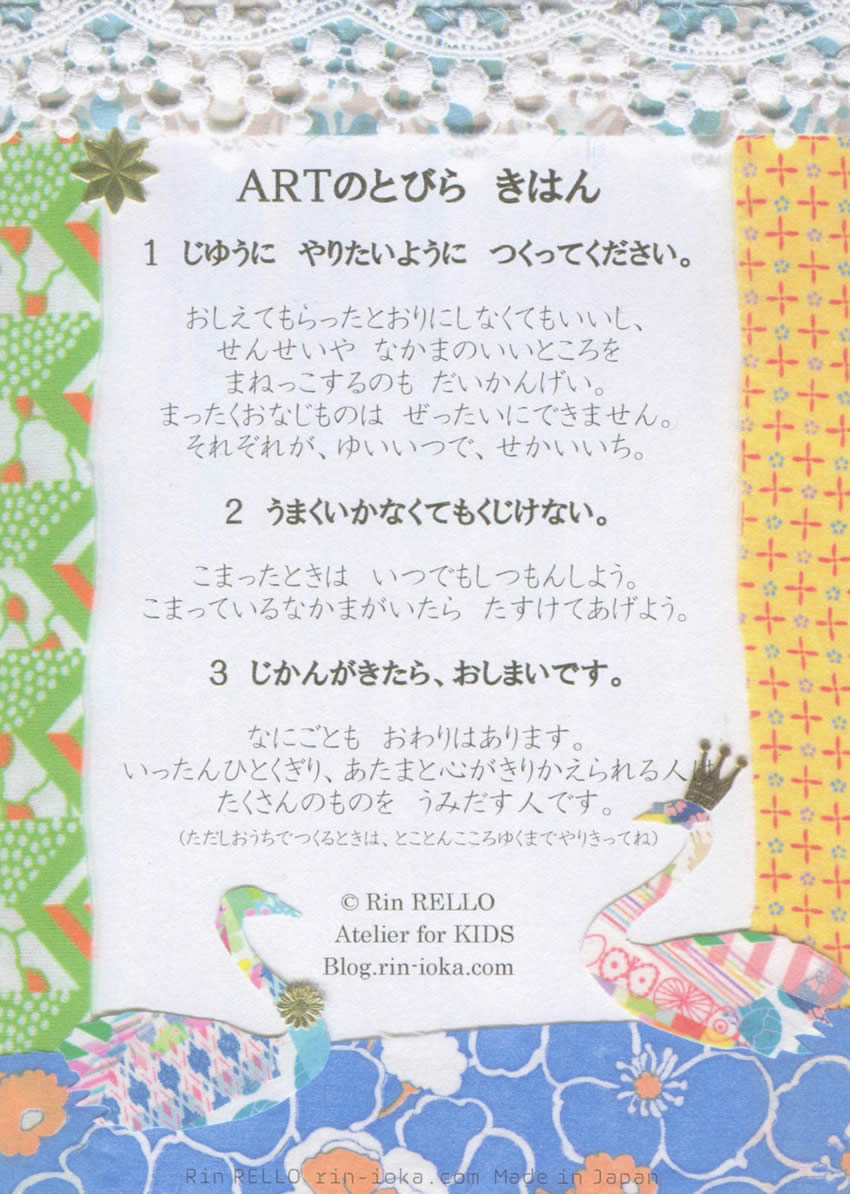 ARTのとびら きはん
1 じゆうに やりたいように つくってください。
おしえてもらったとおりにしなくてもいいし、
せんせいや なかまのいいところを
まねっこするのも だいかんげい。
まったくおなじものは ぜったいにできません。
それぞれが、ゆいいつで、せかいいち。
2 うまくいかなくてもくじけない。
こまったときは いつでもしつもんしよう。
こまっているなかまがいたら たすけてあげよう。
3 じかんがきたら、おしまいです。
なにごとも おわりはあります。
いったんひとくぎり、あたまと心がきりかえられる人は
たくさんのものを うみだす人です。
(ただしおうちでつくるときは、とことんこころゆくまでやりきってね)
© Rin RELLO
Atelier for KIDS
Blog.rin-ioka.com
Rin RELLO rin-ioka.com Made in Japan